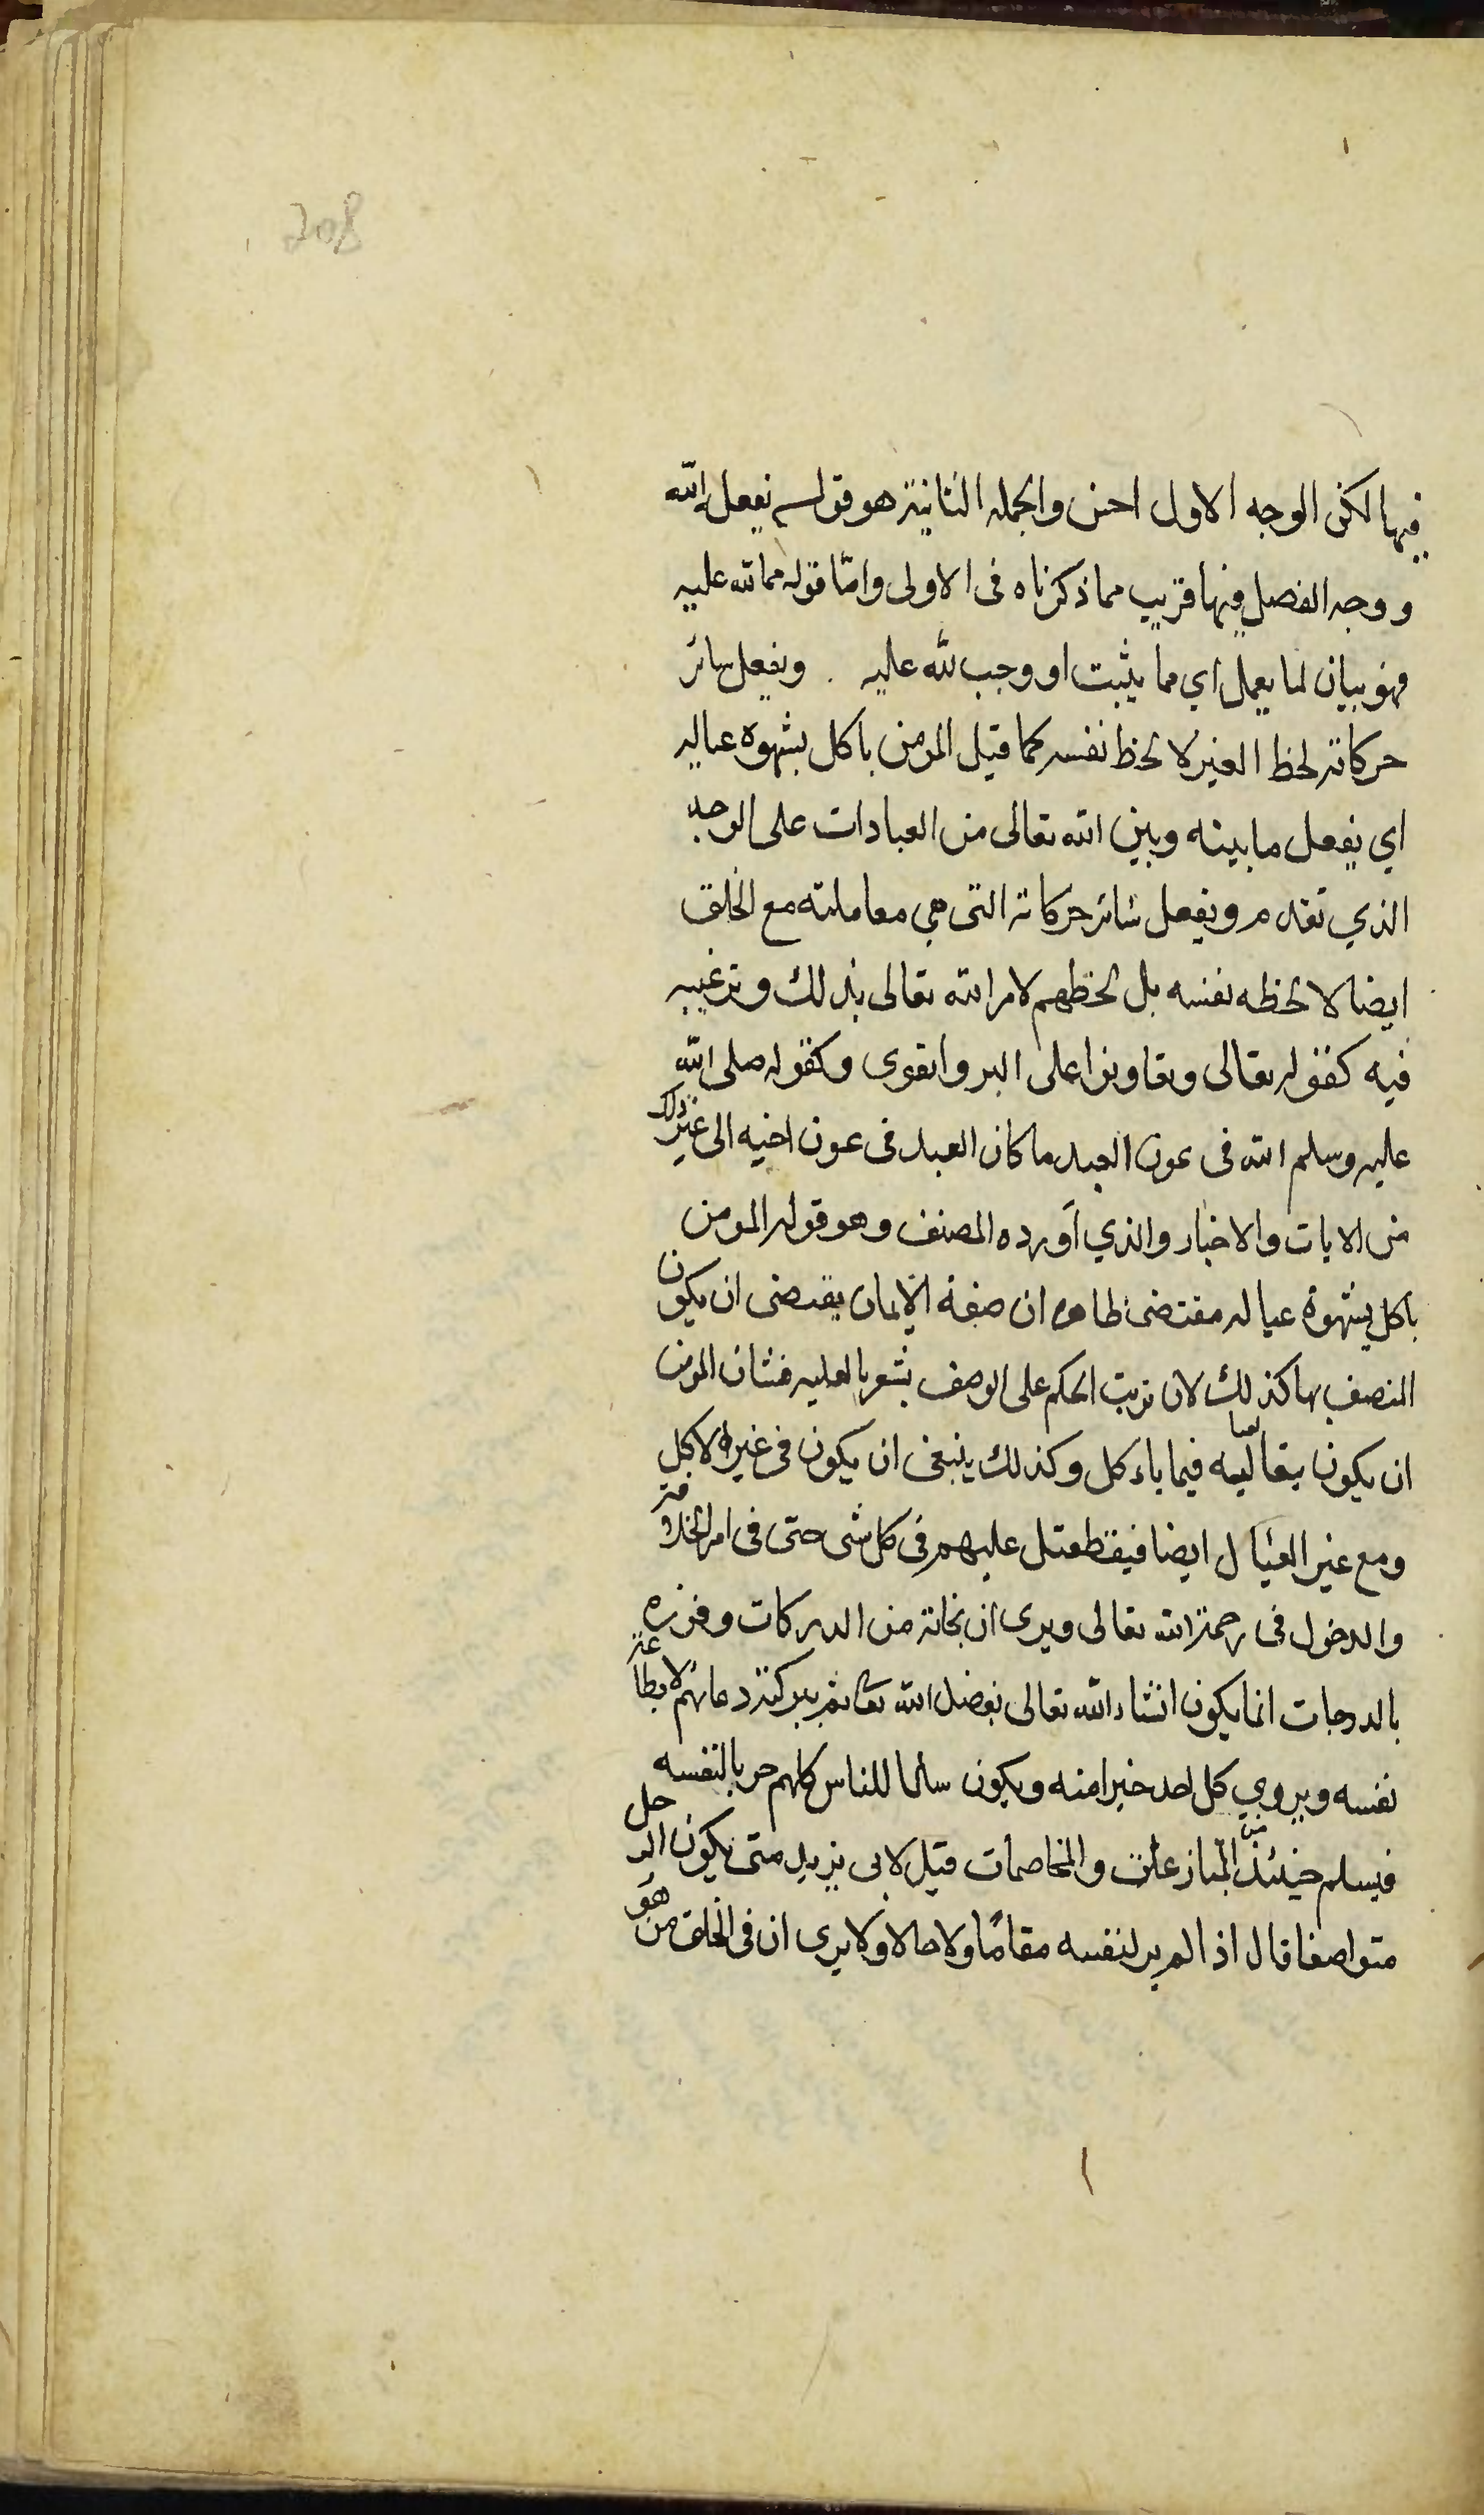 208
فيها لكن الوجه الاول احسن والجمله الثانية هو قوله يفعل لله
ووجه الفصل فيها قريب مما ذكرناه فى الاولى وامّا قوله مما لله عليه
فهو بيان لما يعمل اي مما يثبت او وجب لله عليه . ويفعل سائر
حركاته لحظ الغير لا لحظ نفسه كما قيل المومن ياكل بشهوة عياله
اي يفعل ما بينه وبين الله تعالى من العبادات على الوجه
الذي تقدم ويفعل سائر حركاته التى هي معاملته مع الخلق
ايضا لا لحظه نفسه بل لحظهم لامر الله تعالى بذلك وترغيبه
فيه كقوله تعالى وتعاونوا على البر والتقوى وكقوله صلى الله
عليه وسلم الله فى عون العبد ما كان العبد فى عون اخيه الى غير ذلك
من الايات والاخبار والذي اورده المصنف وهو قوله المومن
ياكل بشهوة عياله مقتضى ظاهره ان صفة الايمان يقتضى ان يكون
المتصف بها كذلك لان ترتب الحكم على الوصف يشعر بالعليه فشان المومن
ان يكون فيما ياءكل وكذلك ينبغى ان يكون فى غير الاكل
ومع غير العيال ايضا عليهم فى كل شى حتى فى امر الاخرة
والدخول فى رحمة الله تعالى ويرى ان نجاته من الدركات وفوزه
بالدرجات انما يكون انشاء الله تعالى بفضل الله تعا ثم ببركة دعائهم لا بطاعة
نفسه ويروي كل احد خيرا منه ويكون سالما للناس كلهم حربا لنفسه
فيسلم حينئذ من المنازعات والمخاصمات قيل لابى يزيد متى يكون الرجل
متواضعا قال اذا لم ير لنفسه مقامًا ولا حالا ولا يرى ان فى الخلق من هو